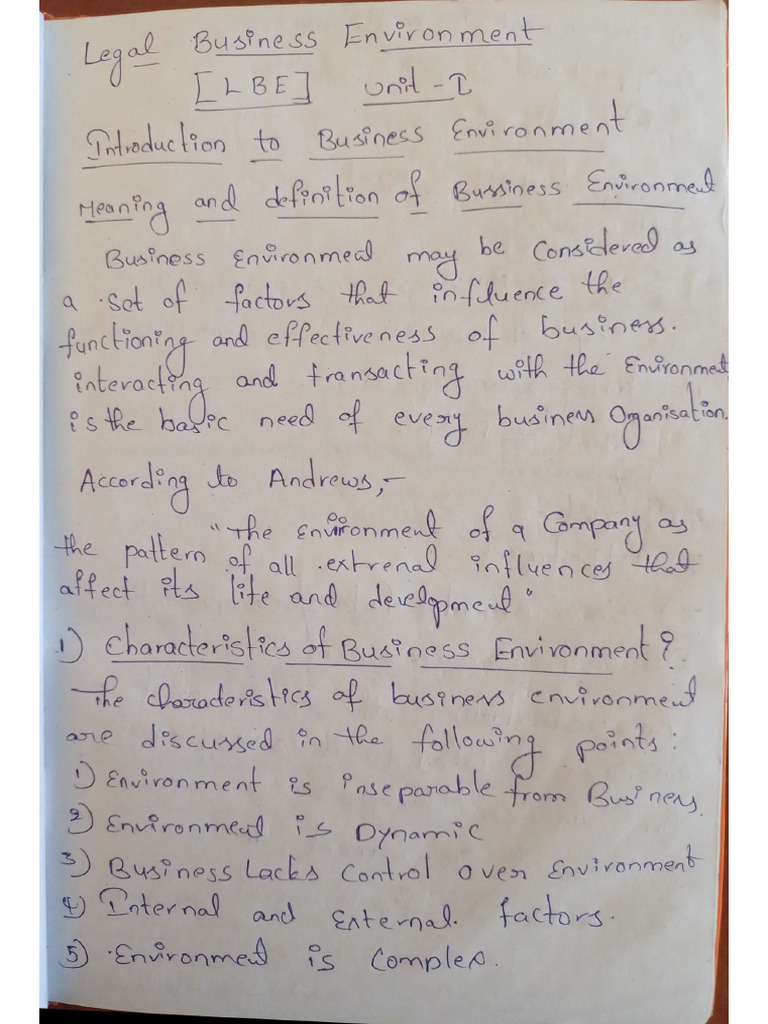 Legal Business Environment
[LBE] Unit - I
Introduction to Business Environment
Meaning and definition of Bussiness Environment
Business Environment may be Considered as
a set of factors that influence the
functioning and effectiveness of business.
interacting and transacting with the Environment
is the basic need of every business Organisation.
According to Andrews,-
"The Environment of a Company as
the pattern of all extrenal influences that
affect its life and development"
1) Characteristics of Business Environment?
The characteristics of business environment
are discussed in the following points:
1) Environment is inseparable from Business.
2) Environment is Dynamic
3) Business Lacks Control over Environment
4) Internal and External factors.
5) Environment is Complex.